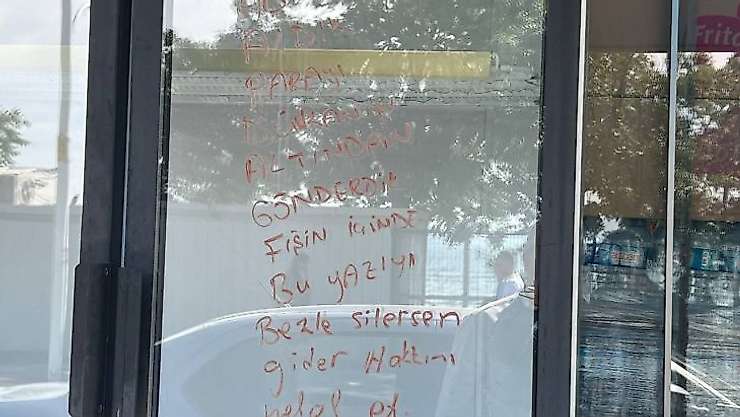 PARAYI
DÜKKANIN
ALTINDAN
GÖNDERDİK
FİŞİN İÇİNDE
Bu YAZIYI
Bezle silersen
gider Hakkını
helal et.
Frito